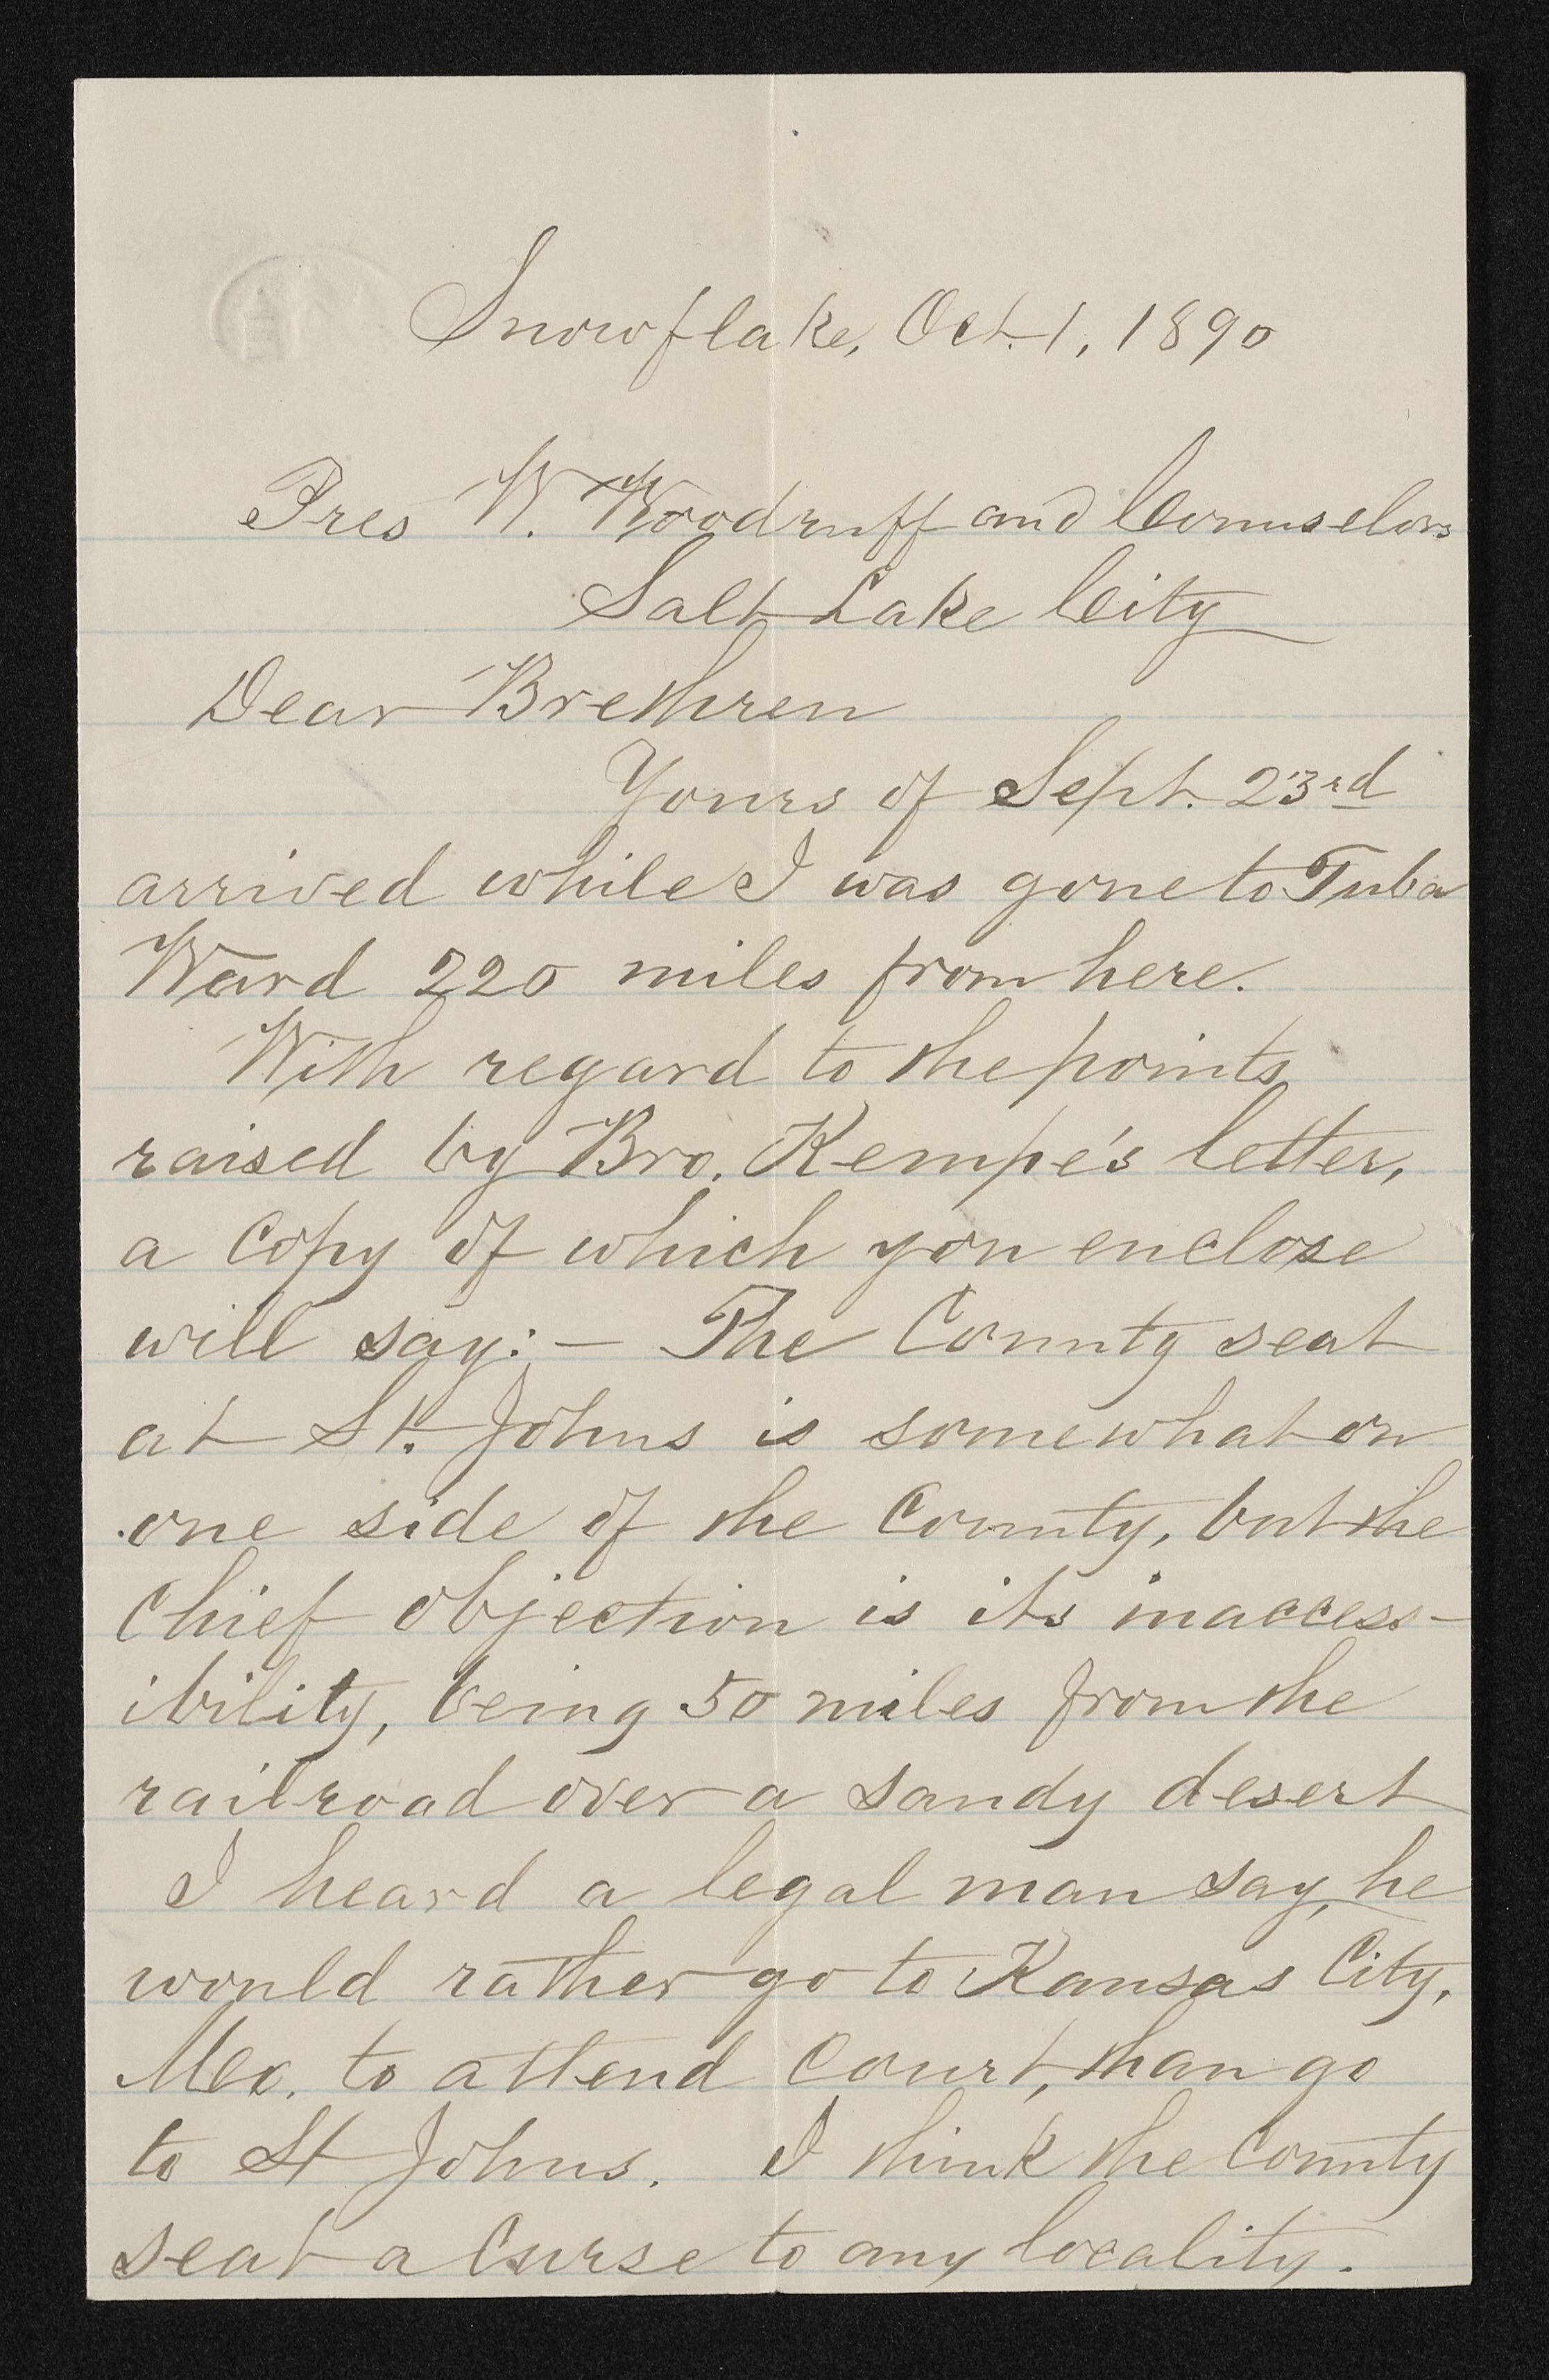 Snowflake, Oct. 1, 1890
Pres W. Woodruff and Counselors
Salt Lake City
Dear Brethren
Yours of Sept. 23rd
arrived while I was gone to Tuba
Ward 220 miles from here.
With regard to the points
raised by Bro. Kempe's letter,
a Copy of which you enclose
will say:— The County seat
at St. Johns is somewhat on
one side of the County, but the
Chief objection is its inaccess-
ibility, being 50 miles from the
railroad over a sandy desert
I heard a legal man say, he
would rather go to Kansas City,
Mo. to attend Court, than go
to St Johns. I think the County
seat a Curse to any locality.